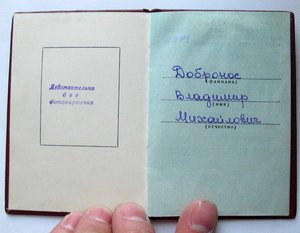 Действительно
без
фотокарточки
Добронос
(фамилия)
Владимир
(имя)
Михайлович
(отчество)